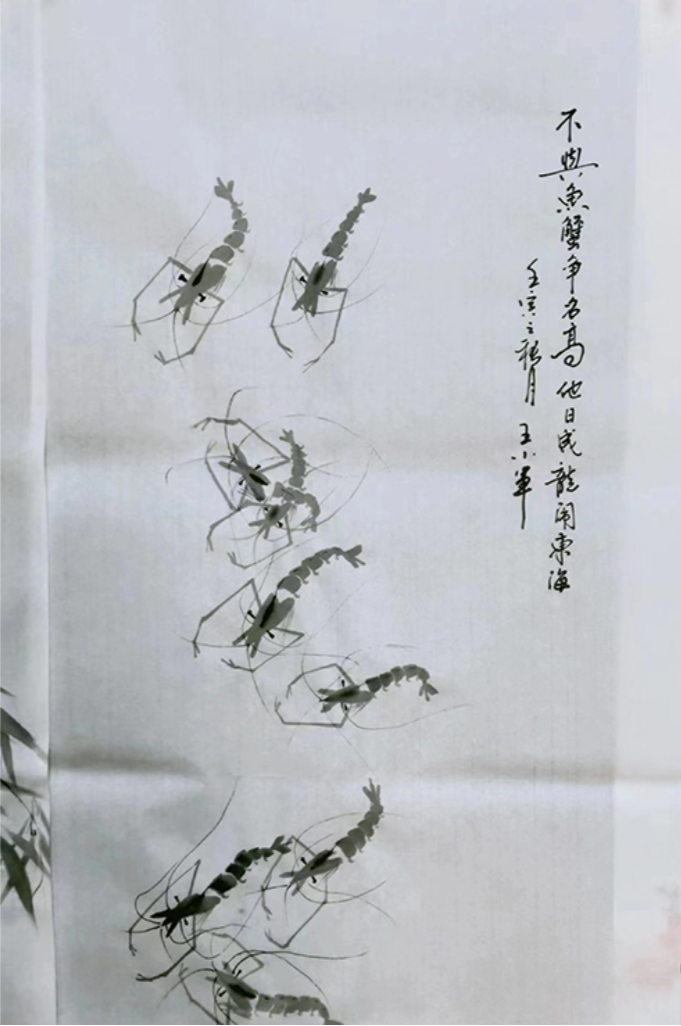 不與魚蟹争名高他日成龍闹東海
壬寅之秋月 王小軍